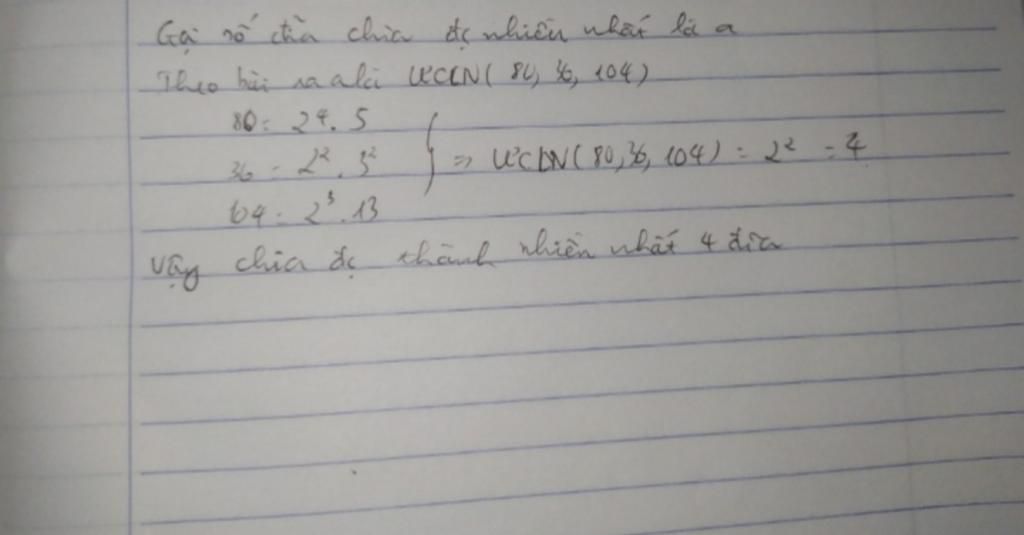 Gọi số đĩa chia đc nhiều nhất là a
Theo bài ra a là ƯCLN( 80, 36, 104)
80 = 2⁴. 5
36 = 2² . 3² } => ƯCLN( 80, 36, 104) = 2² = 4
104 = 2³ . 13
Vậy chia đc thành nhiều nhất 4 đĩa